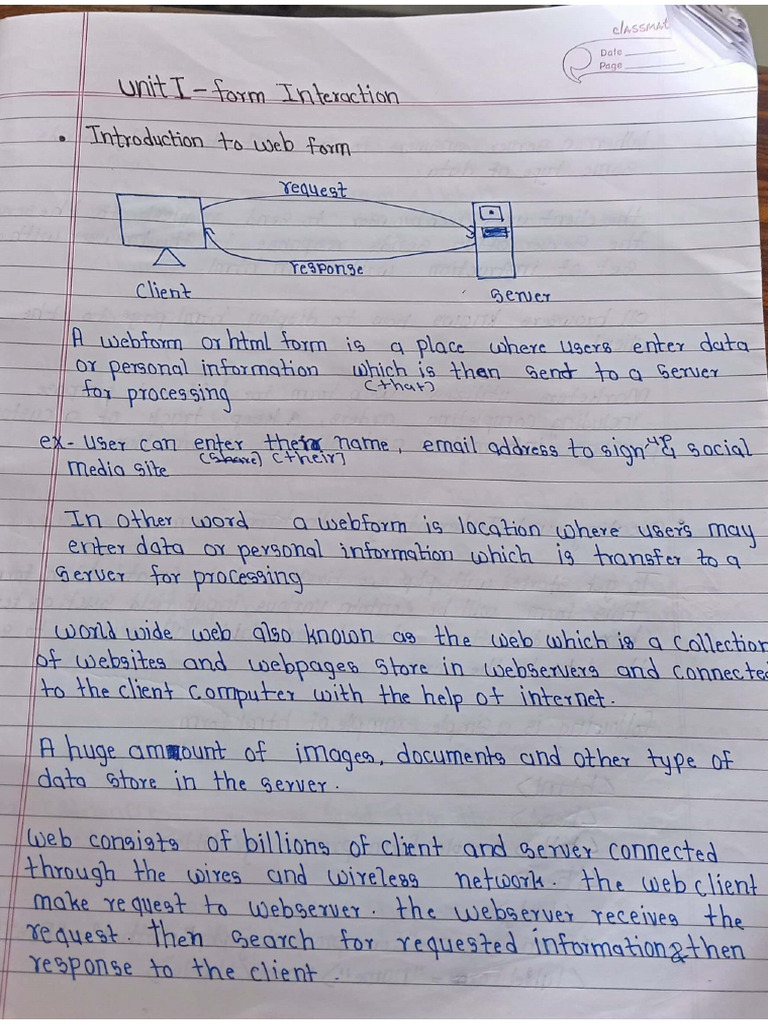 classmat
Date
Page
Unit I - form Interaction
• Introduction to web form
request
response
client
server
A webform or html form is a place where users enter data
or personal information which is then send to a server
(that)
for processing
ex- user can enter their name, email address to sign up & social
(share) (their)
media site
In other word a webform is location where users may
enter data or personal information which is transfer to a
server for processing
world wide web also known as the web which is a collection
of websites and webpages store in webservers and connected
to the client computer with the help of internet.
A huge amount of images, documents and other type of
data store in the server.
web consists of billions of client and server connected
through the wires and wireless network. the web client
make request to webserver. the webserver receives the
request. then search for requested information & then
response to the client.